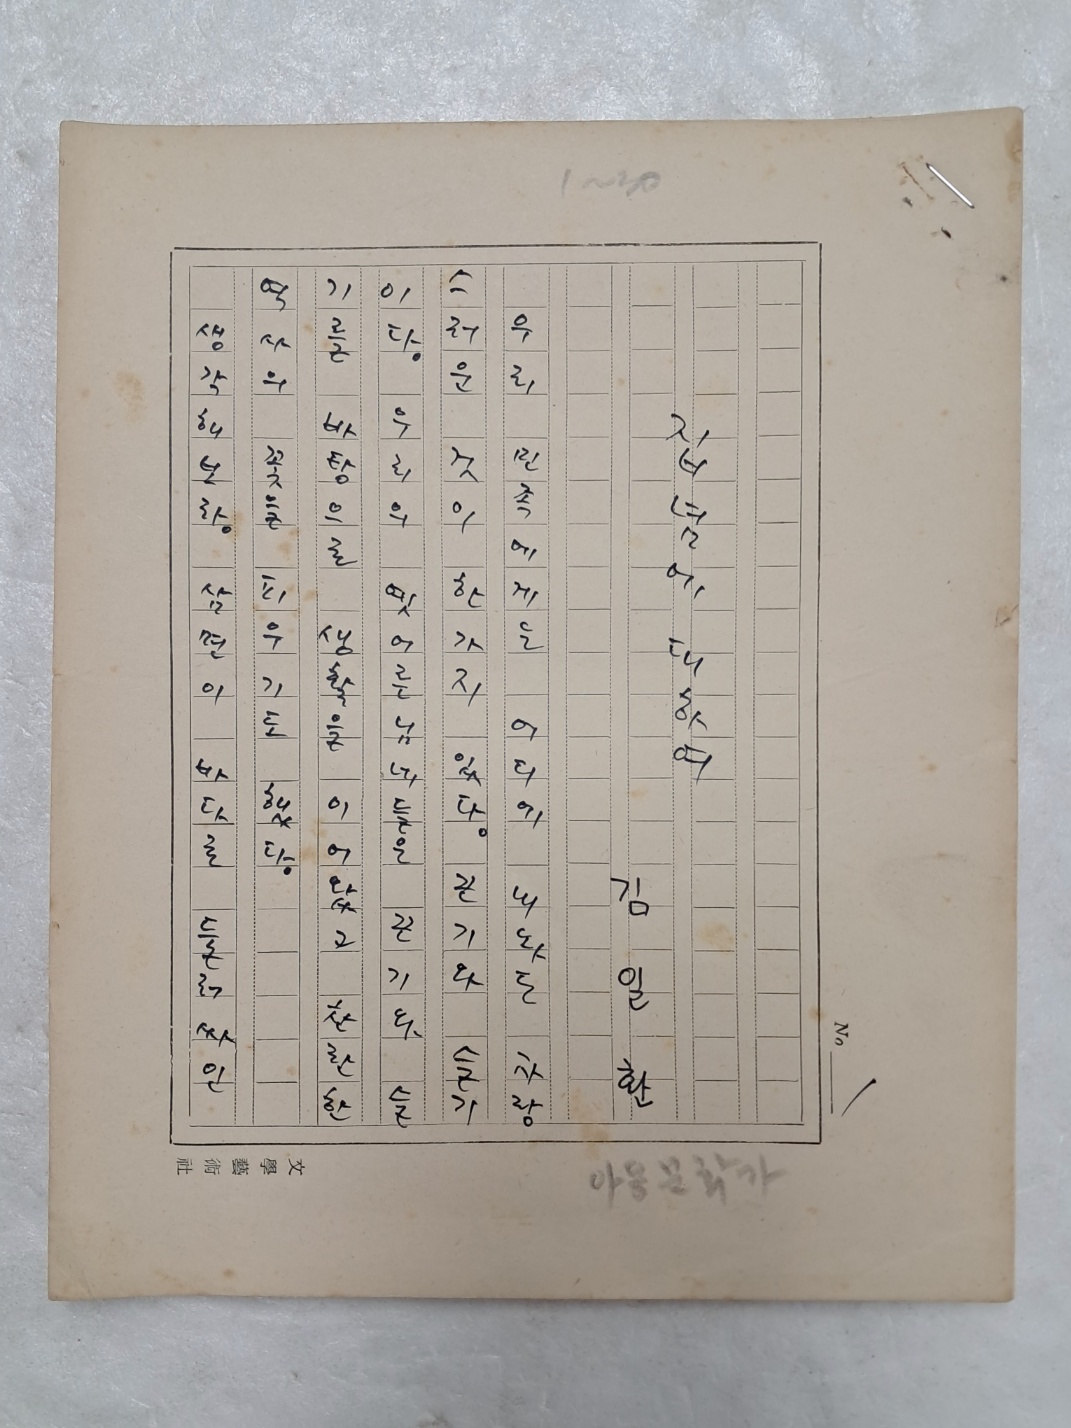 1~30
No 1
집념에 대하여
김 일 환
우리 민족에게는 어디에 내놔도 자랑
스러운 것이 한가지 있다. 끈기와 슬기
이다. 우리의 옛어른님네들은 끈기와 슬
기를 바탕으로 생활을 이어왔고 찬란한
역사의 꽃을 피우기도 했다.
생각해보라. 삼면이 바다로 둘러싸인
아동문학가
文學藝術社